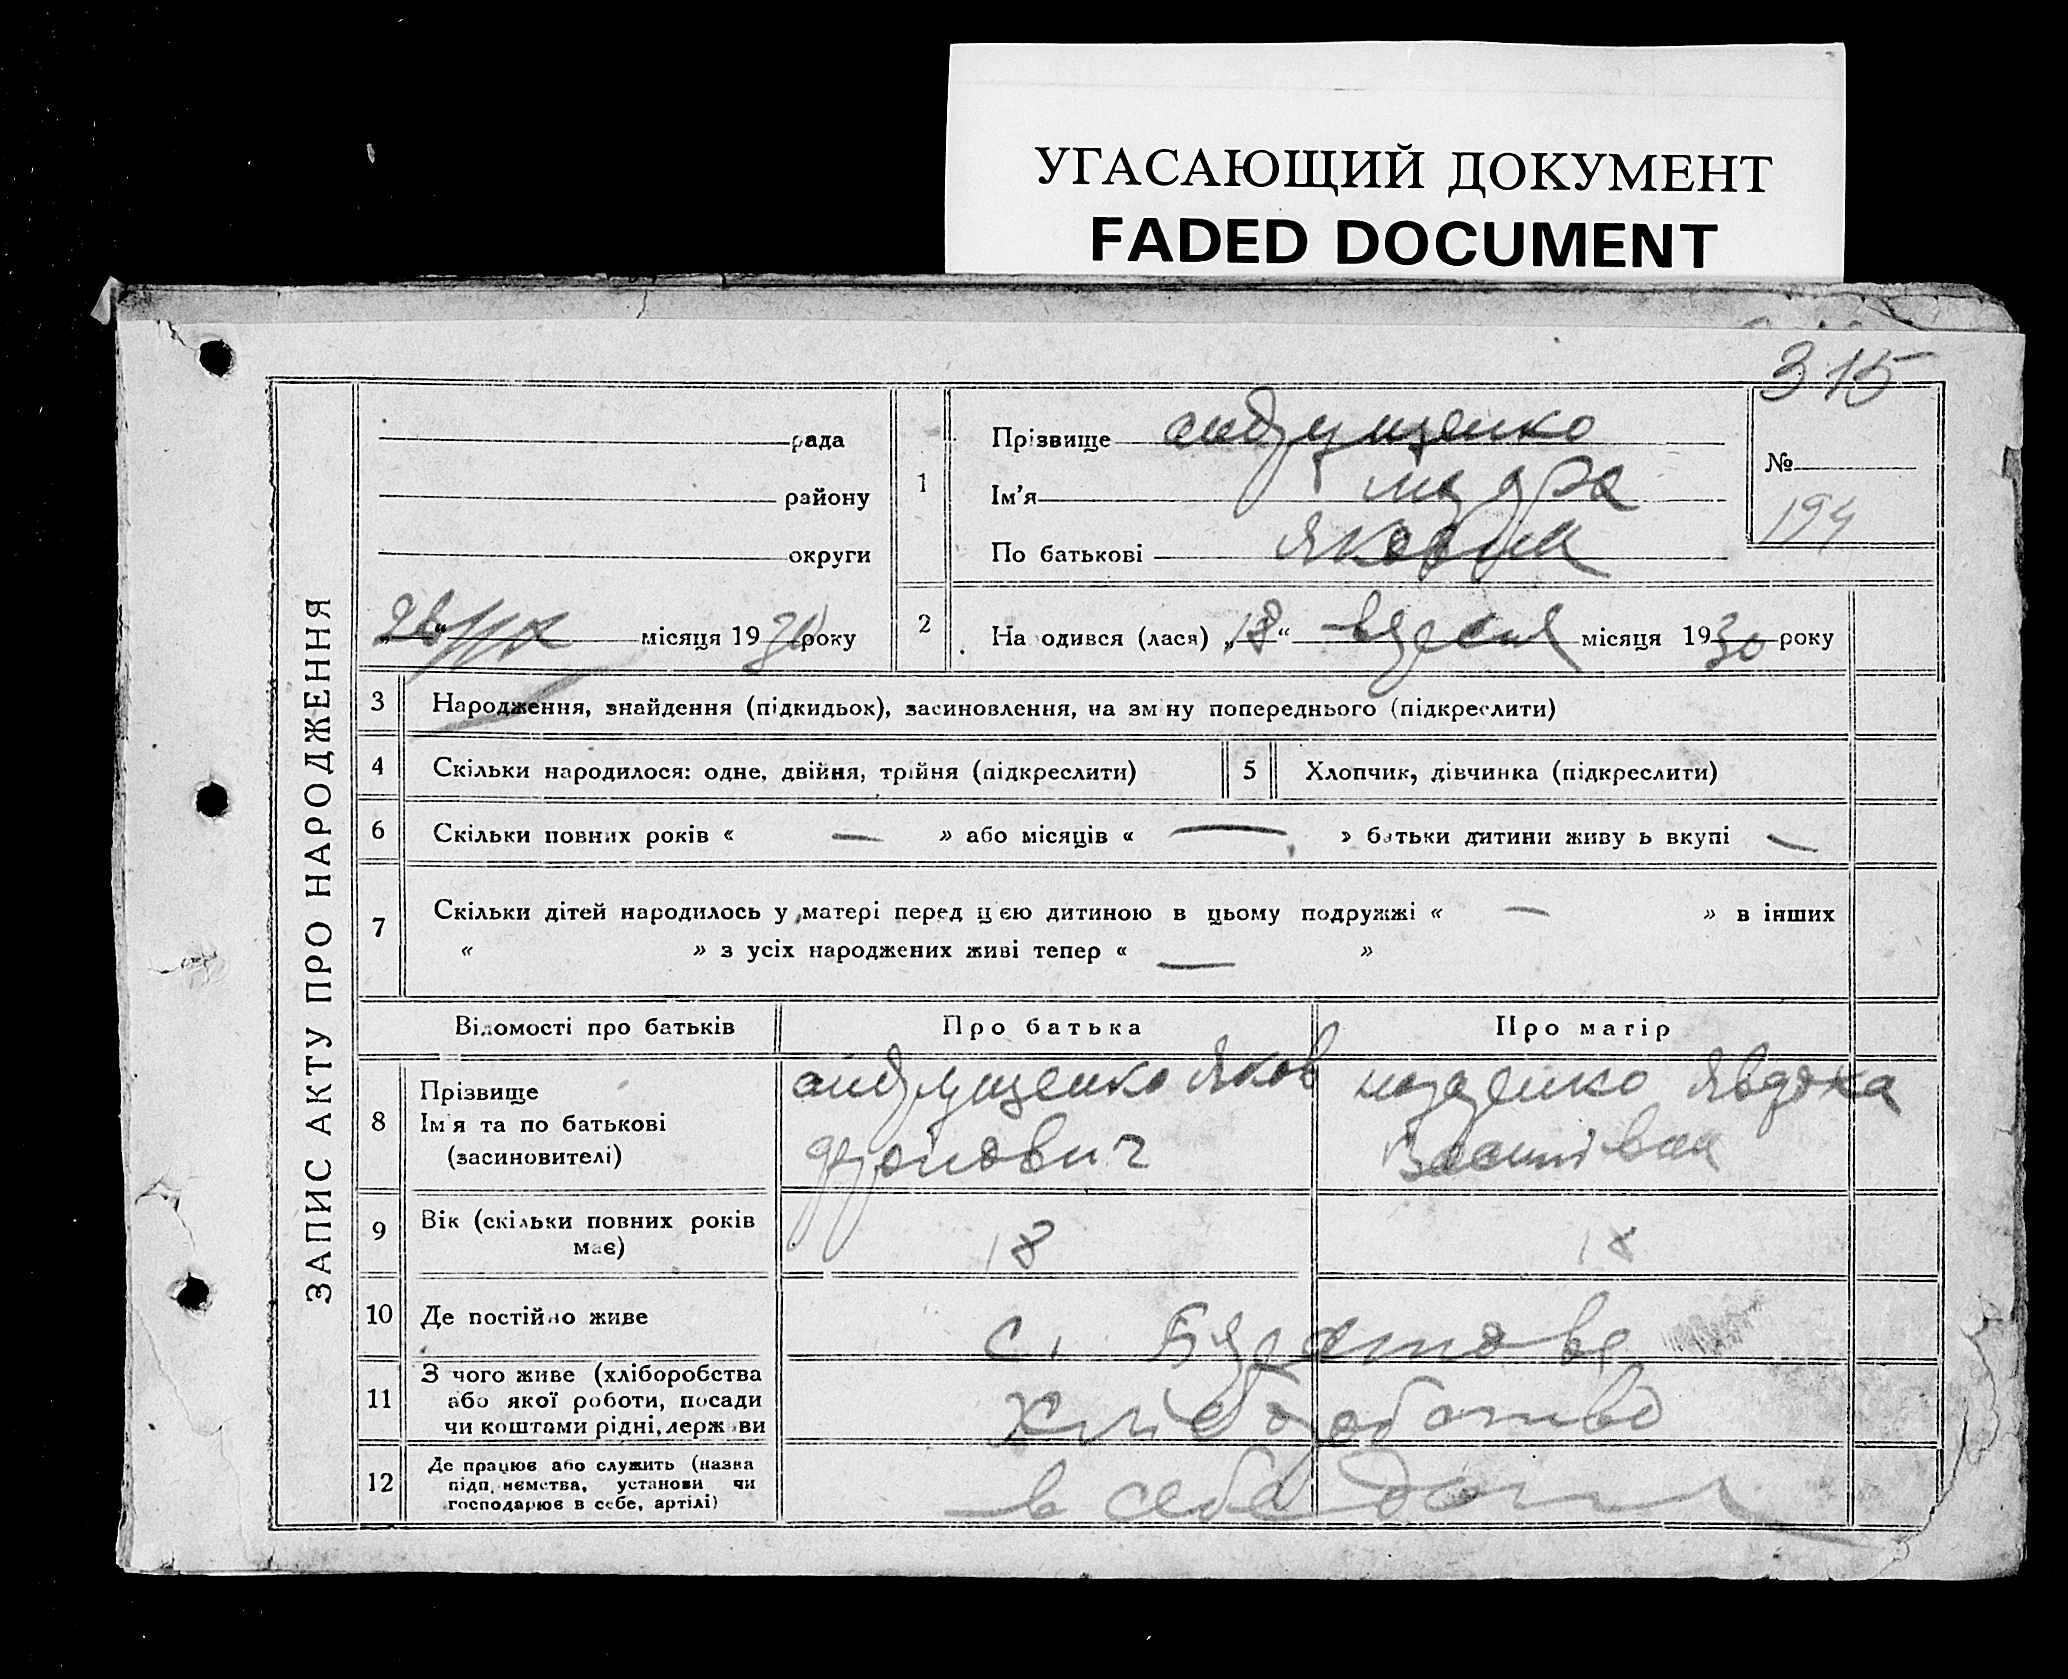 УГАСАЮЩИЙ ДОКУМЕНТ
FADED DOCUMENT
315
ЗАПИС АКТУ ПРО НАРОДЖЕННЯ
рада
району
округи
місяця 1930 року
1
Прізвище андрущенко
Ім'я
По батькові
№
194
2
На одився (лася) „18“ вересня місяця 1930 року
3
Народження, знайдення (підкидьок), засиновлення, на зм ну попереднього (підкреслити)
4
Скільки народилося: одне, двійня, трійня (підкреслити)
5
Хлопчик, дівчинка (підкреслити)
6
Скільки повних років « — » або місяців « — » батьки дитини живу ь вкупі —
7
Скільки дітей народилось у матері перед цією дитиною в цьому подружжі « — » в інших
« » з усіх народжених живі тепер « — »
Відомості про батьків
Про батька
Про матір
8
Прізвище
Ім я та по батькові
(засиновителі)
андрущенко яков
явдоха
Василівна
9
Вік (скільки повних років
має)
18
18
10
Де постійно живе
с.
11
З чого живе (хліборобства
або якої роботи, посади
чи коштами рідні, держ ви
хлеборобство
12
Де працює або служить (назва
підп иємства, установи чи
господарює в себе, артілі)
в себе дома